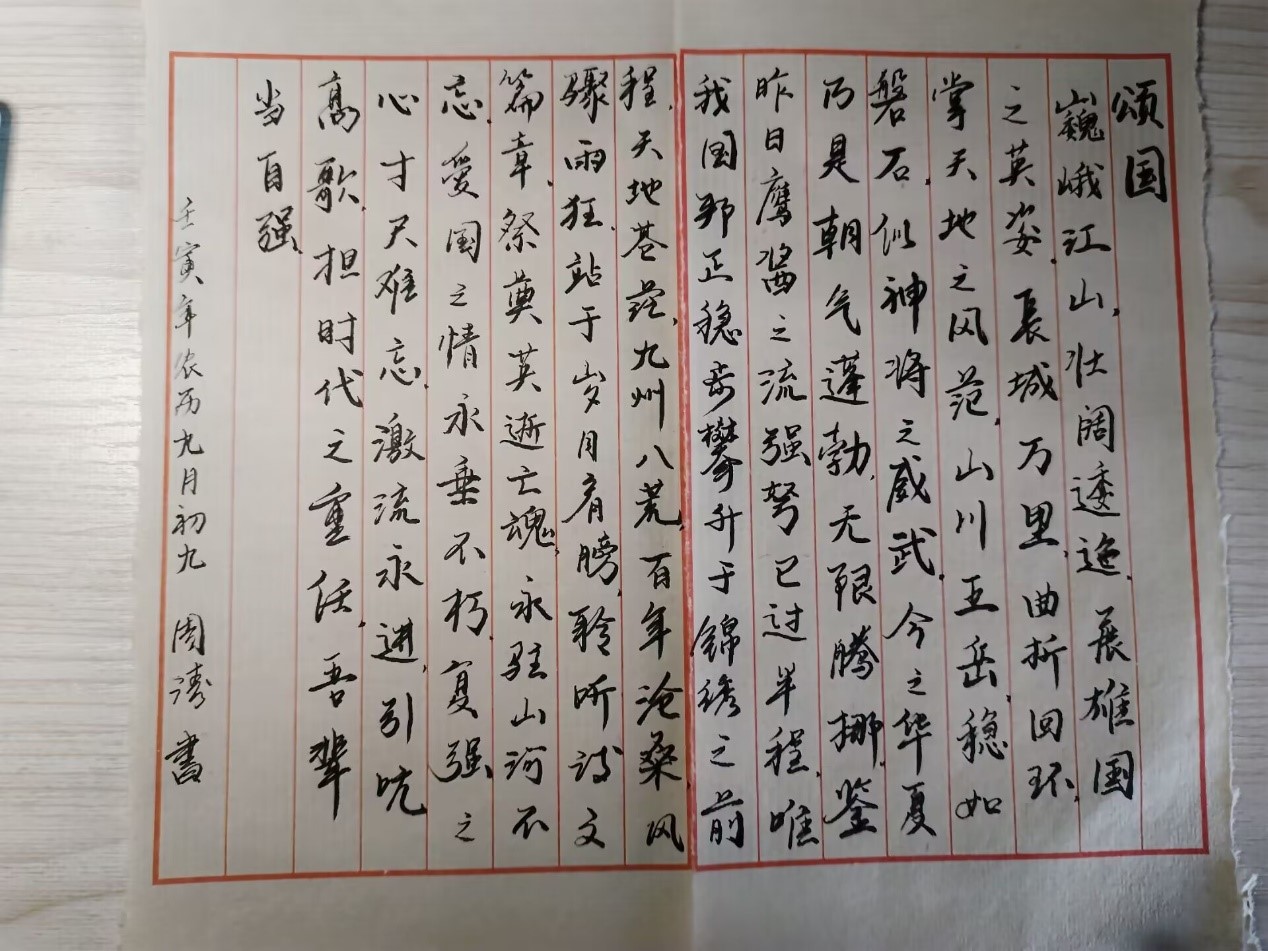 颂国
巍峨江山,壮阔逶迤,展雄国
之英姿,长城万里,曲折回环,
掌天地之风范,山川五岳,稳如
磐石,似神将之威武,今之华夏
乃是朝气蓬勃,无限腾挪,鉴
昨日鹰酱之流强弩已过半程,唯
我国邦正稳步攀升于锦绣之前
程,天地苍茫,九州八荒,百年沧桑,风
骤雨狂,站于岁月肩膀,聆听诗文
篇章,祭奠英逝亡魂,永驻山河不
忘,爱国之情永垂不朽,复强之
心寸尺难忘,激流永进,引吭
高歌,担时代之重任,吾辈
当自强,
壬寅年农历九月初九 周涛 书